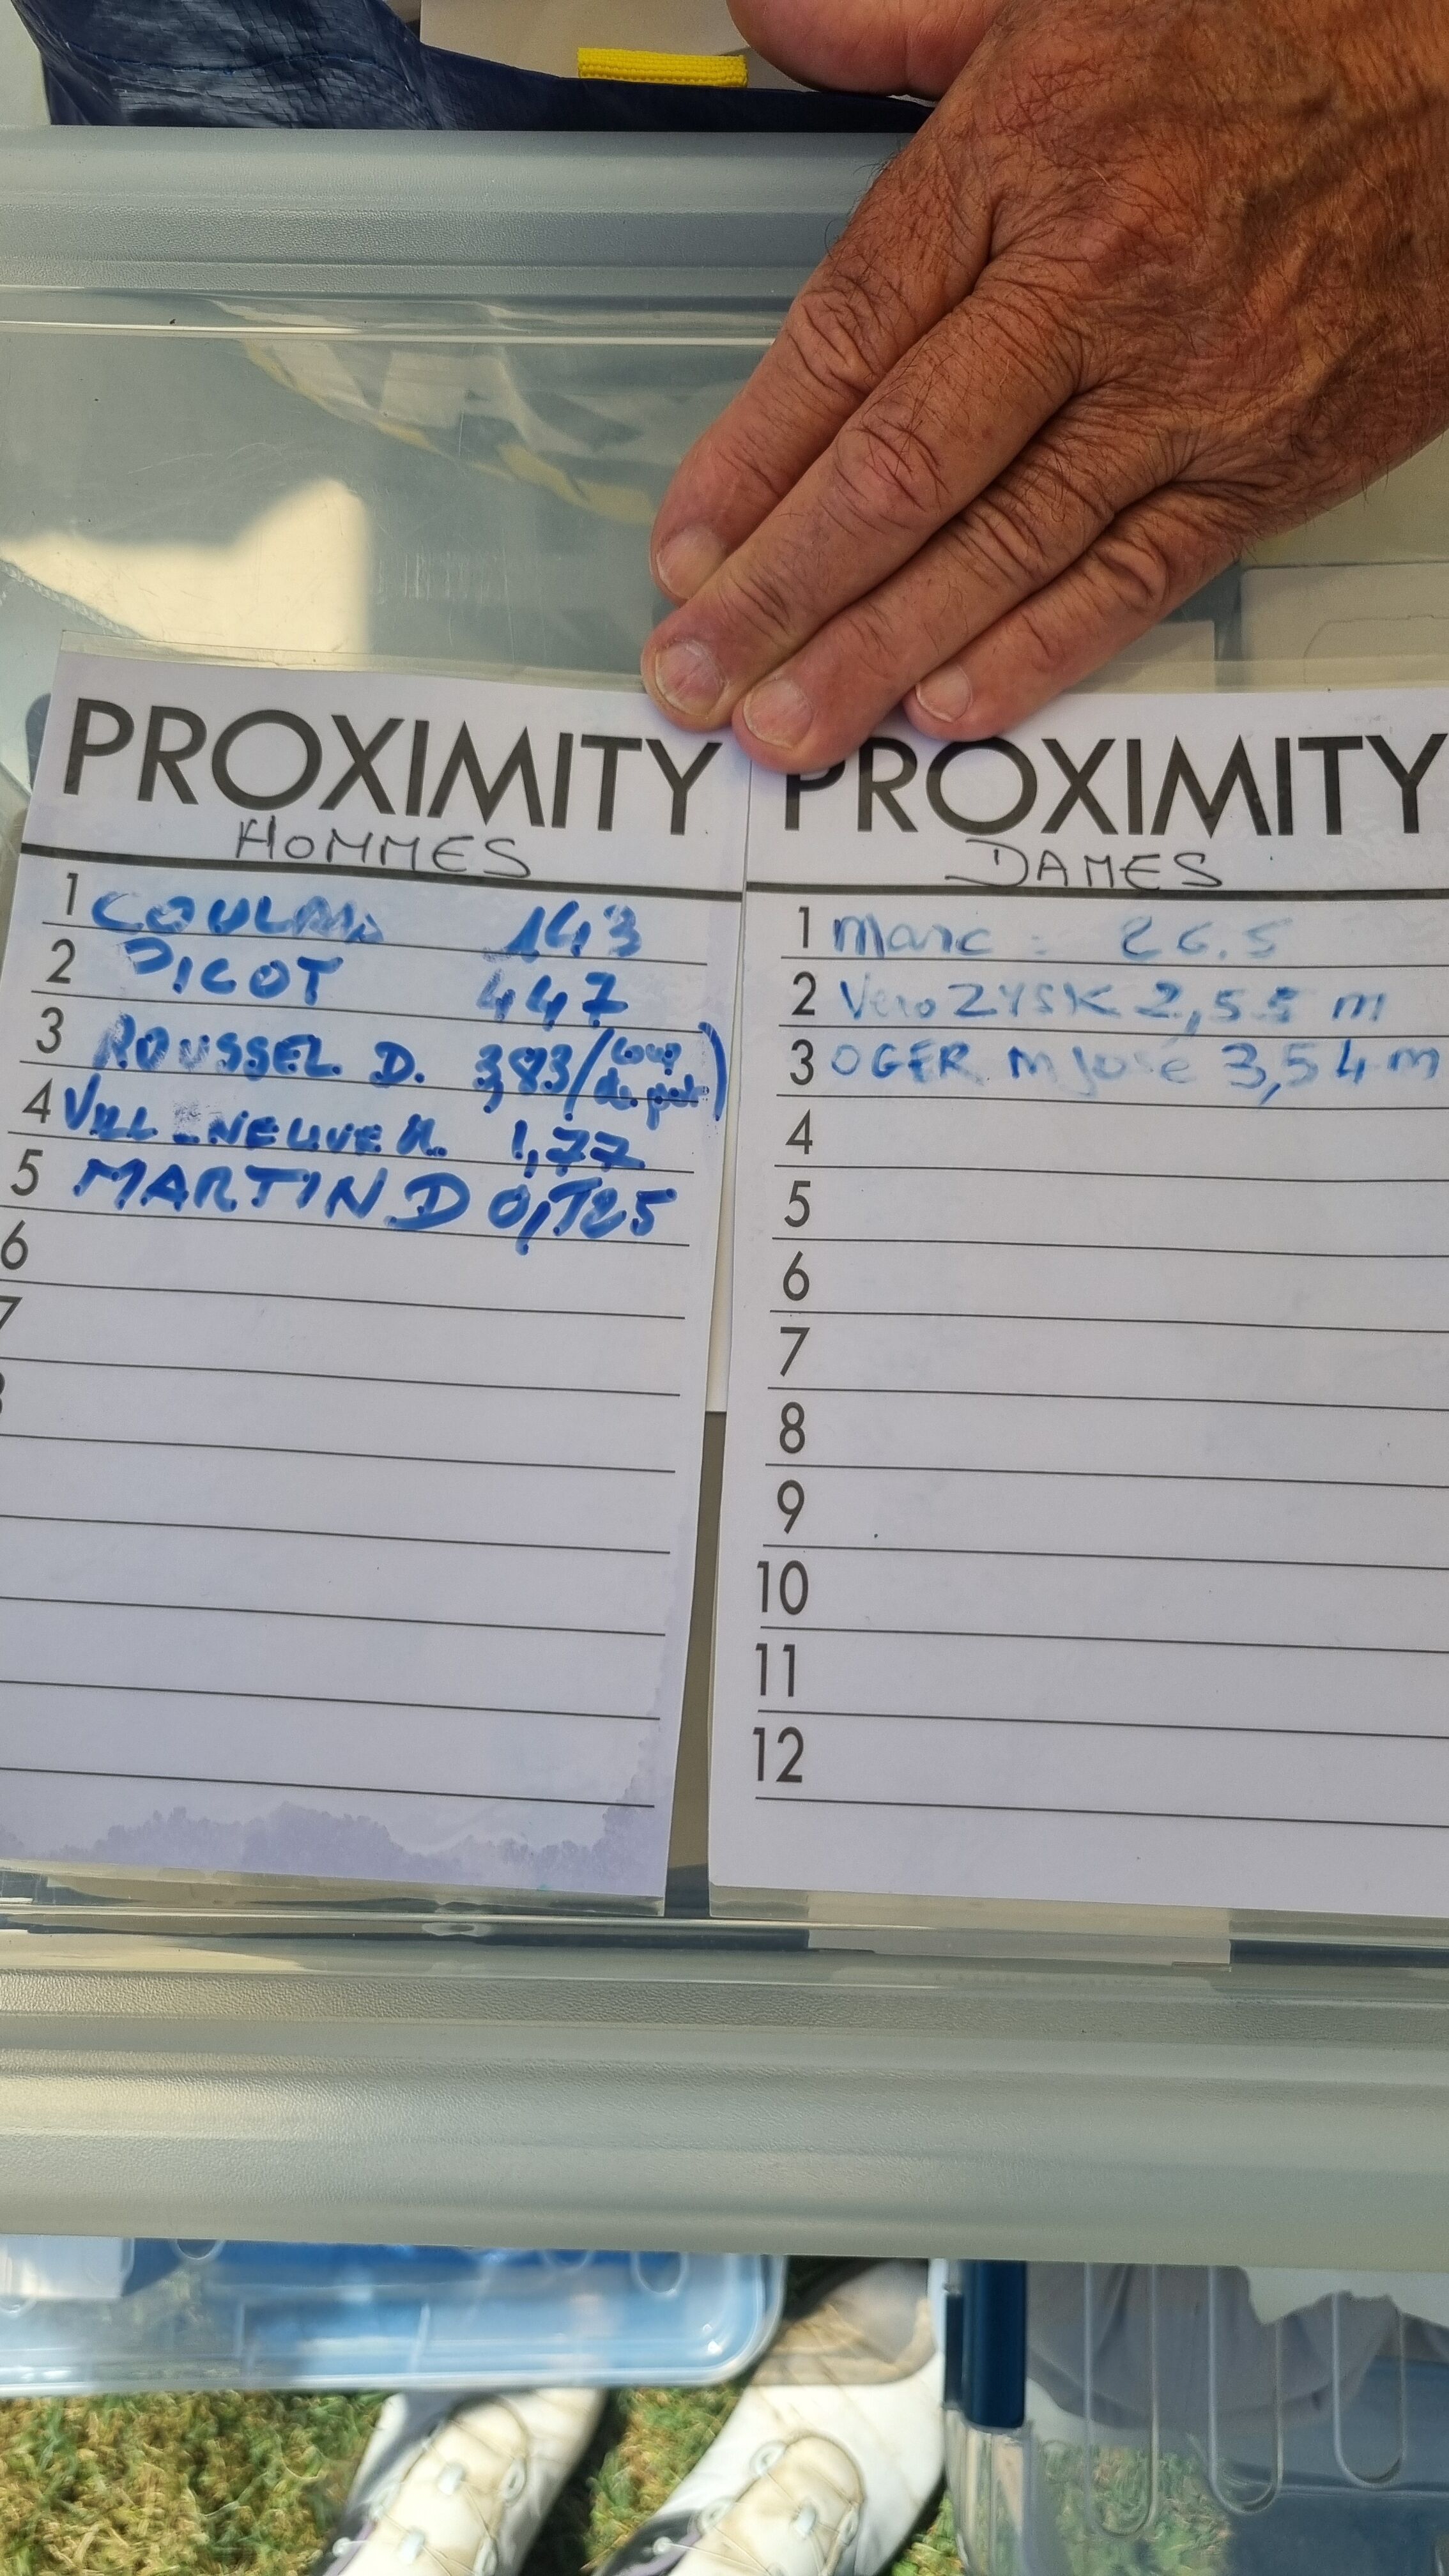 PROXIMITY
HOMMES
1 143
2 PICOT 447
3 ROUSSEL D. 3,83 (coup
4 VILLENEUVE 1,77
5 MARTIN D 0,785
6
7
PROXIMITY
DAMES
1 Marc : 26.5
2 Vero ZYSK 2,55 m
3 OGER M José 3,54 m
4
5
6
7
8
9
10
11
12